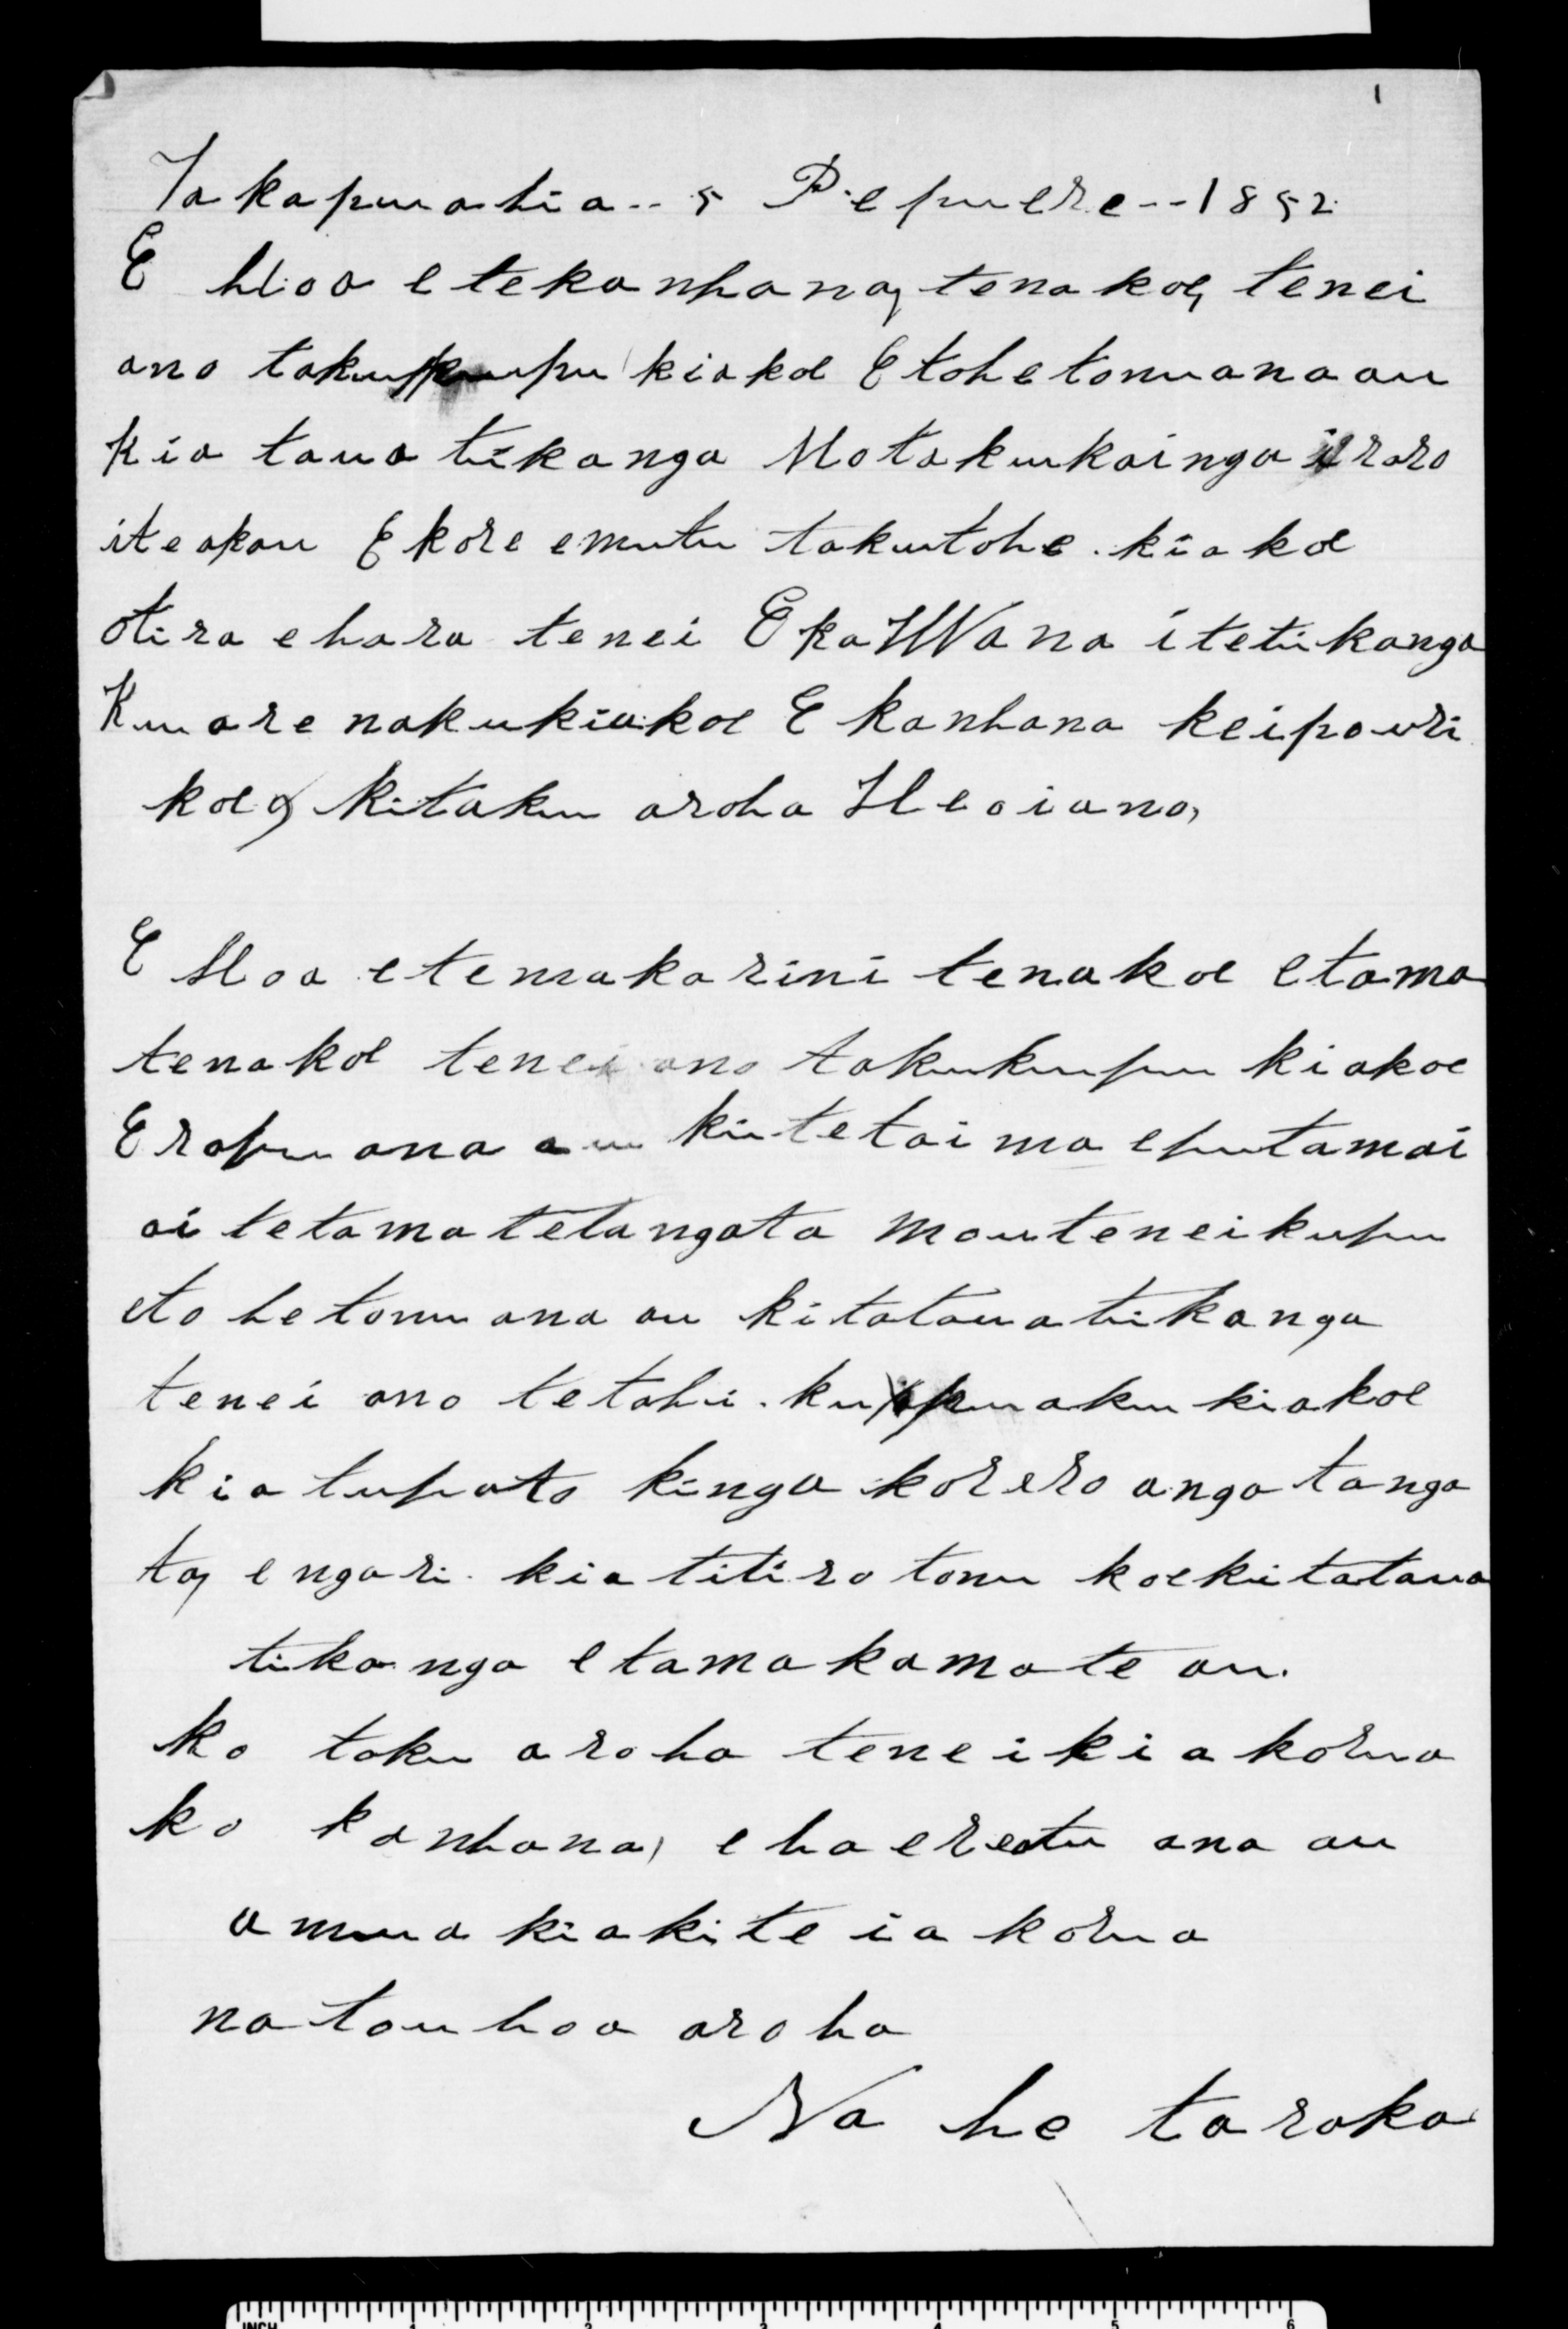 1
Takapuahia-- 5 Pepuere--1852
E Hoa e tekanhana, tenakoe, tenei
ano takukupu kiakoe E tohetonuana au
kia taua tikanga Motakukainga iraro
iteakau E kore emutu takutohe. kiakoe
otira ehara tenei E kaWana itetikanga
Kuare nakukiakoe E kanhana keipouri
koe, kitaku aroha Heoiano,
E Hoa etemakarini tenakoe etama
tenakoe tenei ano takukupu kiakoe
E rapu ana au kitetaima eputamai
ai tetamatetangata mouteneikupu
etohetonu ana au kitatauatikanga
tenei ano tetahi. kupuaku kiakoe
kiatupato kinga korero angatanga
ta, engari. kiatitiro tonu koekitataua
tikanga etamakamate au.
ko taku aroha teneikiakorua
ko kanhana, ehaereatu ana au
amua kiakite ia korua
natouhoa aroha
Na he taraka
INCH 1 2 3 4 5 6